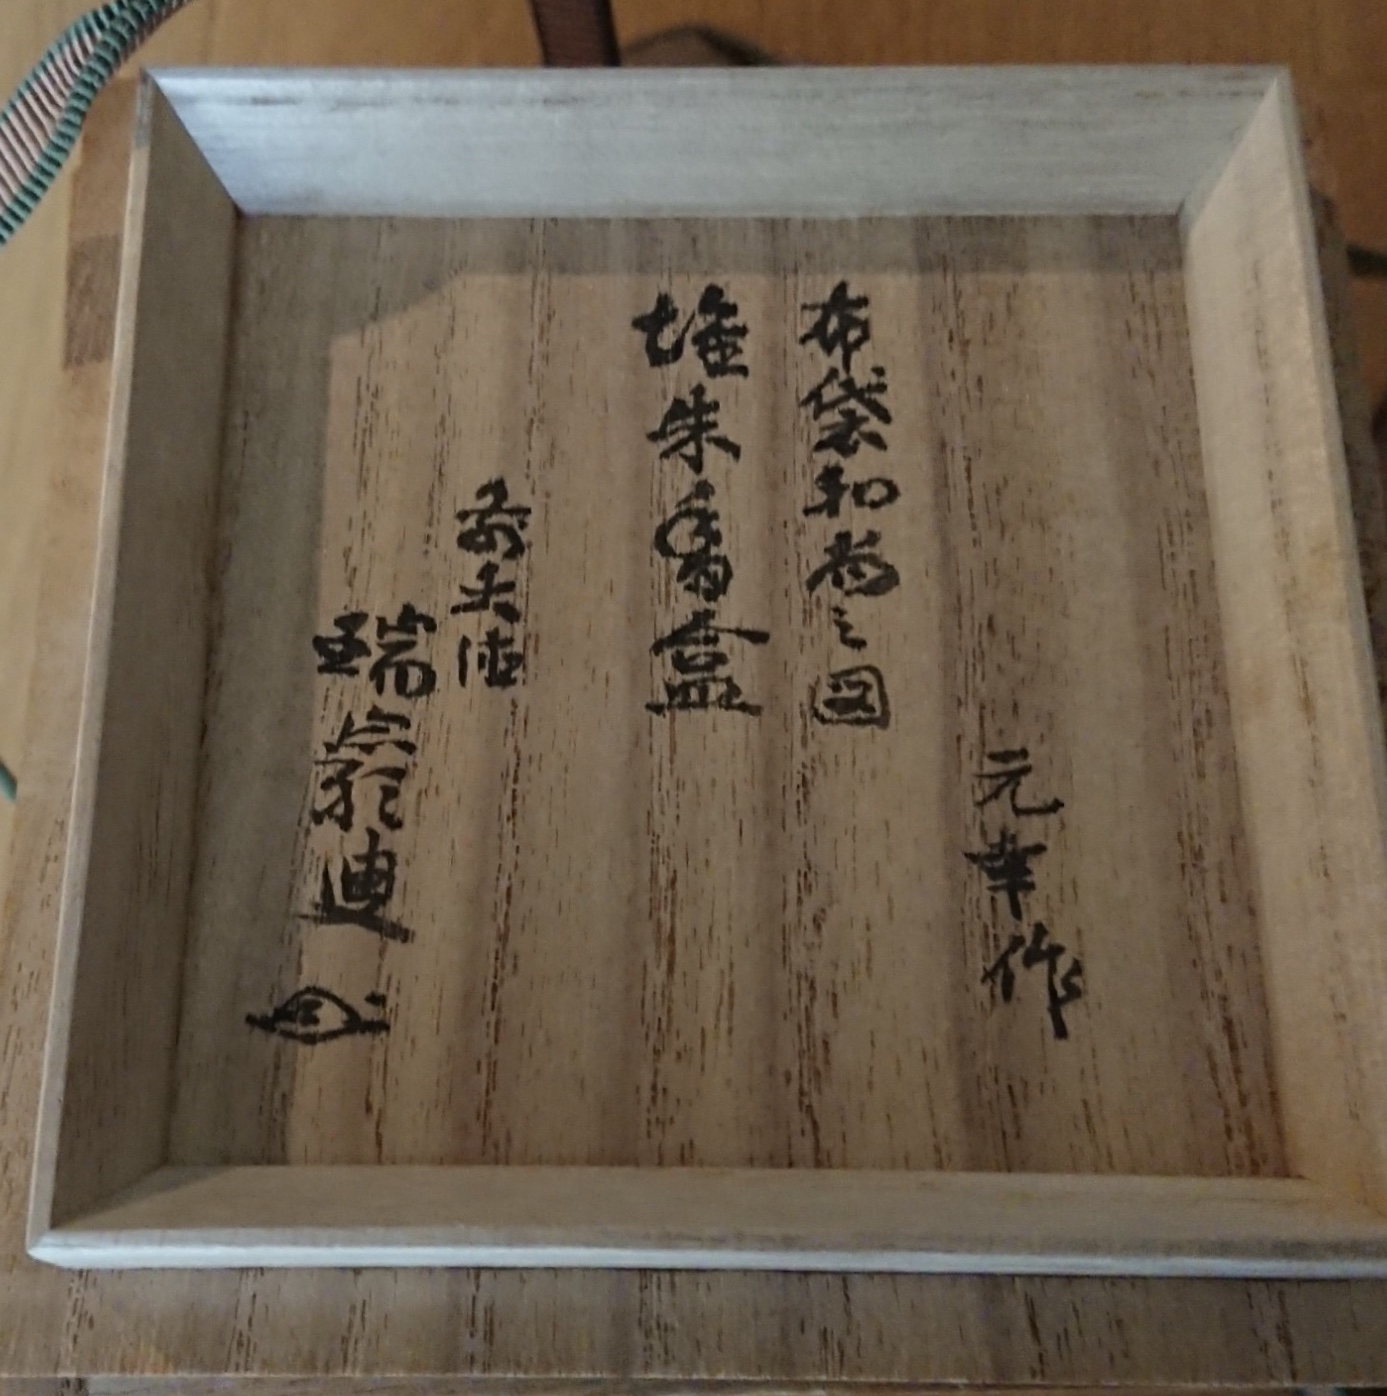 元幸作
布袋和尚之図
堆朱香盒
前大徳
瑞
迪